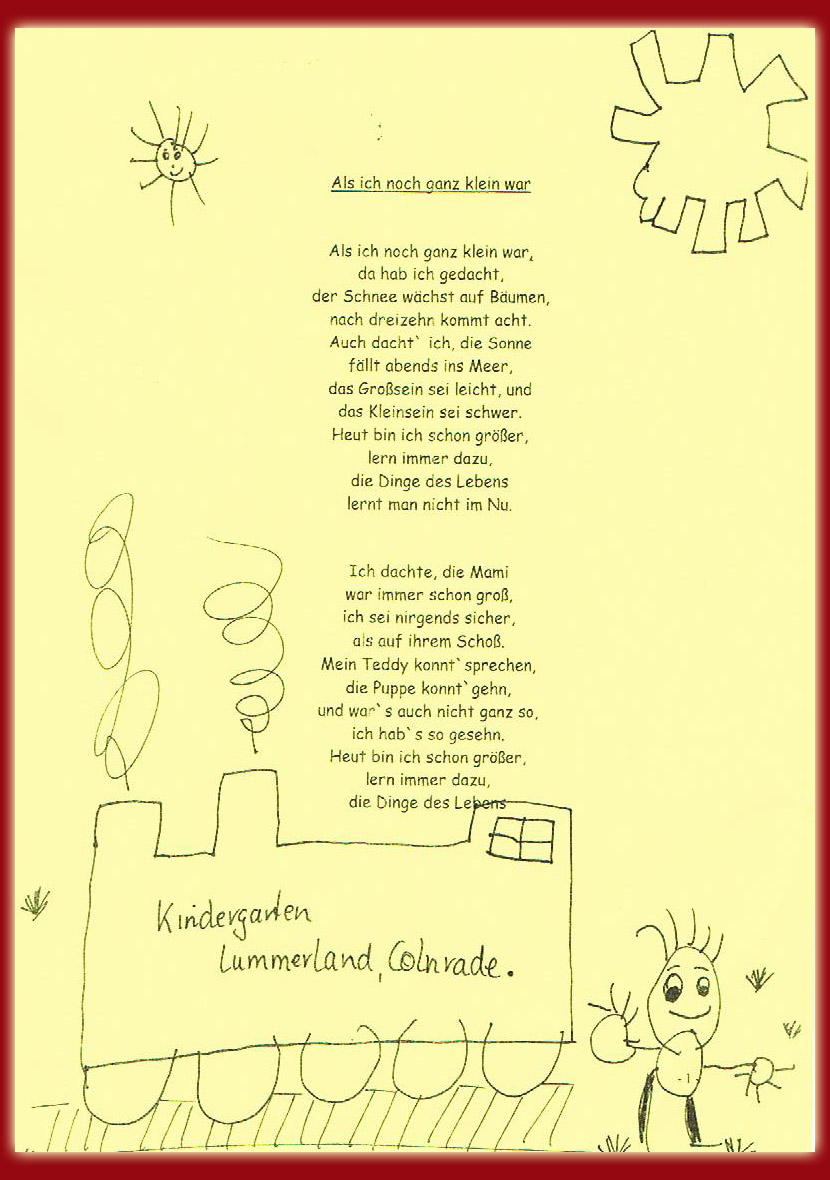 Als ich noch ganz klein war
Als ich noch ganz klein war,
da hab ich gedacht,
der Schnee wächst auf Bäumen,
nach dreizehn kommt acht.
Auch dacht` ich, die Sonne
fällt abends ins Meer,
das Großsein sei leicht, und
das Kleinsein sei schwer.
Heut bin ich schon größer,
lern immer dazu,
die Dinge des Lebens
lernt man nicht im Nu.
Ich dachte, die Mami
war immer schon groß,
ich sei nirgends sicher,
als auf ihrem Schoß.
Mein Teddy konnt`sprechen,
die Puppe konnt`gehn,
und war`s auch nicht ganz so,
ich hab`s so gesehn.
Heut bin ich schon größer,
lern immer dazu,
die Dinge des Lebens
Kindergarten
Lummerland, Colnrade.